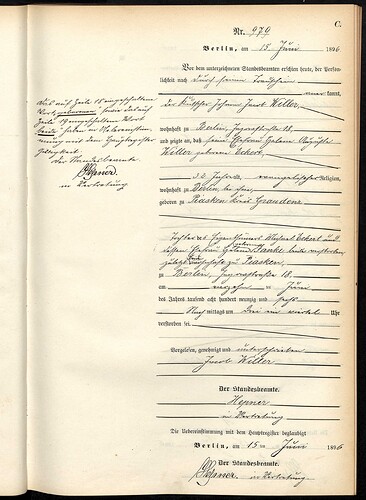 C.
Nr. 979
Berlin, am 15. Juni 1896
Vor dem unterzeichneten Standesbeamten erschien heute, der Persön-
lichkeit nach durch seinen
kannt,
der Kutscher Johann Jacob Weller,
wohnhaft zu Berlin, 18,
und zeigte an, daß seine Ehefrau Auguste
Weller geborene Eckert,
32 Jahre, evangelischer Religion,
wohnhaft zu Berlin, bei ihm,
geboren zu Piasken Kreis Graudenz
Tochter des Michael Eckert und
dessen Ehefrau geborene beide verstorben
zuletzt wohnhaft zu Piasken,
zu Berlin, 18,
am Juni
des Jahres tausend acht hundert neunzig und sechs
Nachmittags um drei ein viertel Uhr
verstorben sei.
Vorgelesen, genehmigt und unterschrieben
Jacob Weller
Der Standesbeamte.
in Vertretung
Die Uebereinstimmung mit dem Hauptregister beglaubigt
Berlin, am 15. Juni 1896
Der Standesbeamte.
in Vertretung
Das auf Zeile 18 eingeschaltene
Wort geborenen sowie das auf
Zeile 19 eingeschaltene Wort
beide haben in Uebereinstim-
mung mit dem Hauptregister
Gültigkeit
Der Standesbeamte
in Vertretung